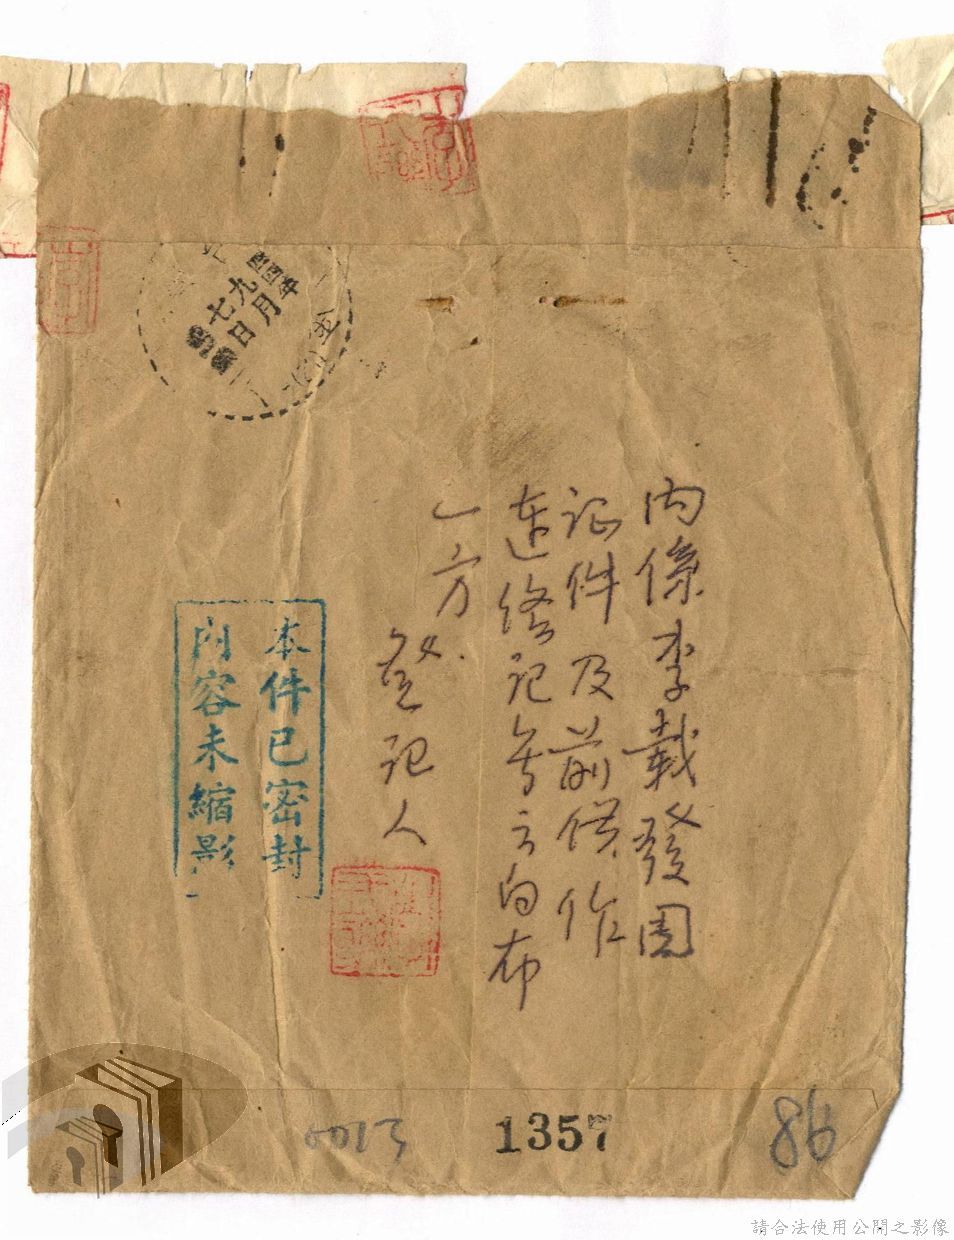 內係李載發團
證件及前供作
連絡記號之白布
一方
登記人
本件已密封
內容未縮影
四四年
九月
七日
0013
1357
86
請合法使用公開之影像